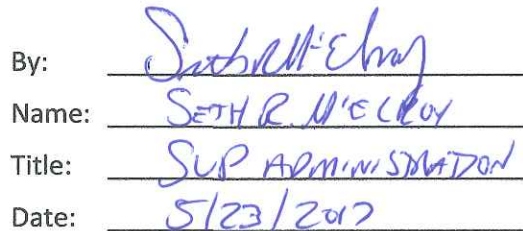 By: Seth R McElroy
Name: SETH R. McELROY
Title: SVP ADMINISTRATION
Date: 5/23/2017